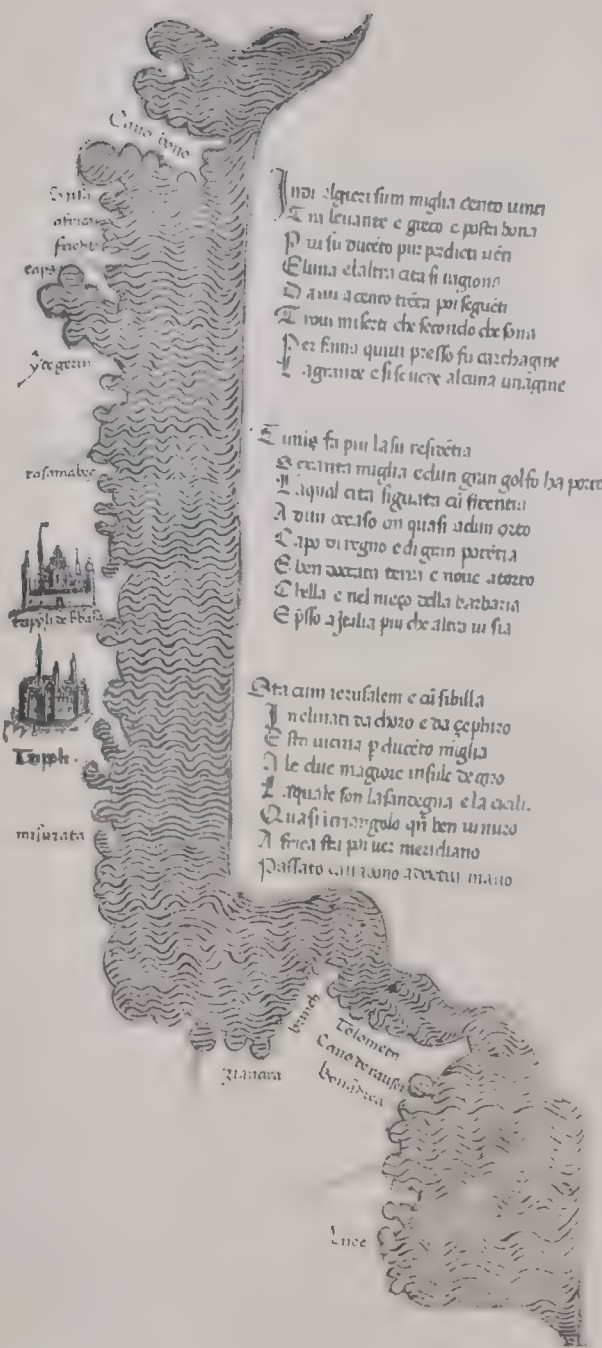 Cauo bono
Susa
africa
caps
rasamabes
tripoli de
Tripoli.
misurata
Indi algieri sum miglia cento uinti
Tra leuante e greco e posta bona
Piu su ducēto pur
E luna e laltra cita si ragiona
Da cento trēta poi seguēti
Troui miserti che secondo che sona
Per fama quiui presso fu carthagine
La grande e si se uede alcuna imagine
Tunis fa piu lasu resistētia
Octanta miglia e dun gran golfo ha porto
Laqual cita figurata cū
A dun occaso on quasi adun orto
Capo di regno e di gran potētia
E ben dotata terra e noue atorto
Chella e nel meço della barbaria
E pſſo a Italia piu che altra ui sia
Sta cum ierusalem e cū sibilla
Inclinati da choro e da çephiro
E sta uicina p ducēto miglia
A le due magiore insule de giro
Laquale son la sardegna e la cicili.
Quasi in triangolo
Africa sta poi uer meridiano
Passato cauo bono a man
Tolometa
Cauo de rausen
Bonādrea
zianara
Luce